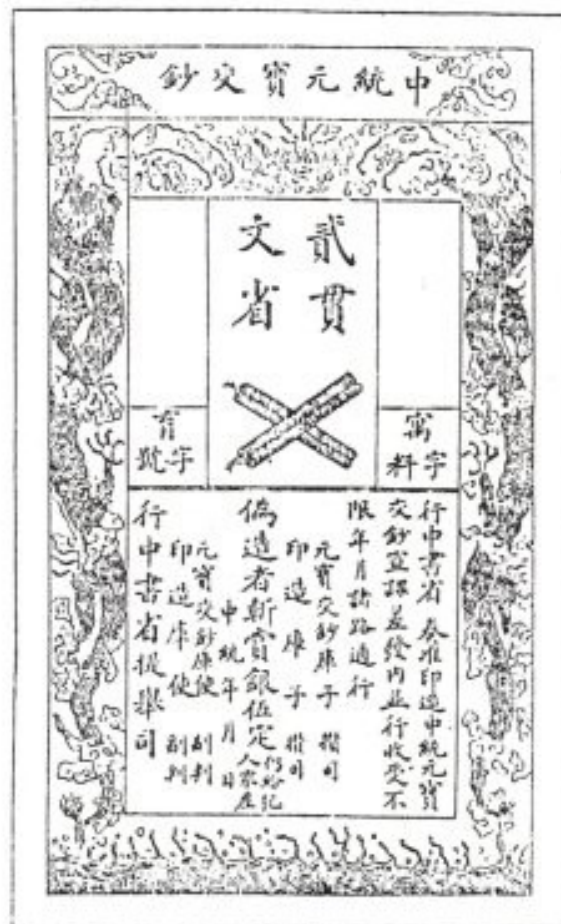 中統元寶交鈔
貳貫
文省
寓字料
育字號
行中書省 奏准印造中統元寶
交鈔宣課差發內並行收受不
限年月諸路通行
元寶交鈔庫子 攢司
印造庫子 攢司
偽造者斬賞銀伍定仍給犯人家產
中統年月日
元寶交鈔庫使副判
印造庫使 副判
行中書省提舉司